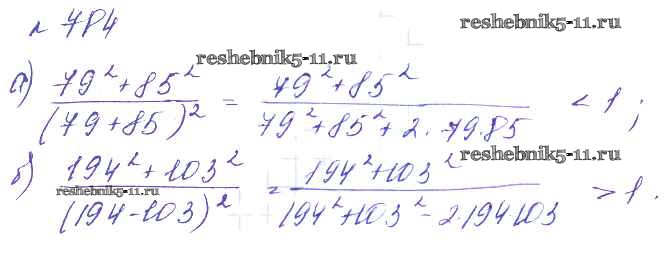 № 784
reshebnik5-11.ru
reshebnik5-11.ru
а) (79² + 85²)/((79 + 85)²) = (79² + 85²)/(79² + 85² + 2 · 79 · 85) < 1;
reshebnik5-11.ru
б) (194² + 103²)/((194 - 103)²) = (194² + 103²)/(194² + 103² - 2 · 194 103) > 1.
reshebnik5-11.ru